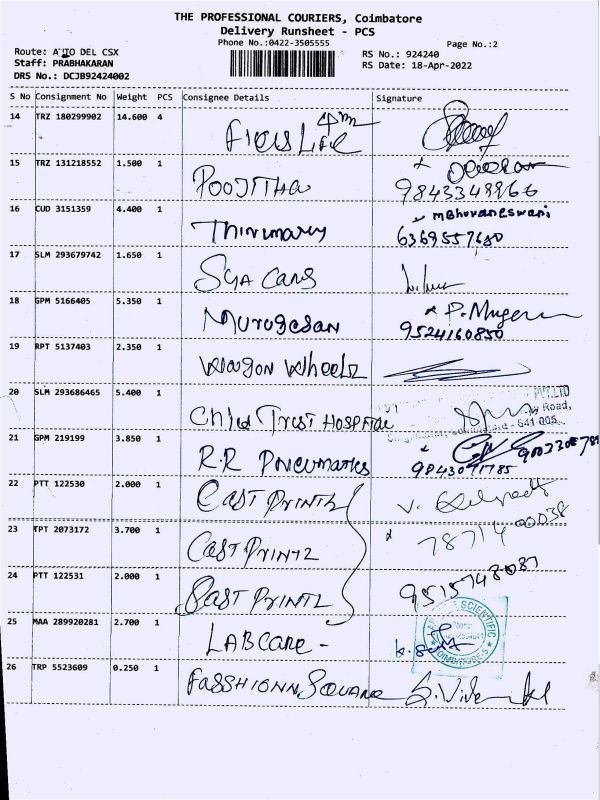 THE PROFESSIONAL COURIERS, Coimbatore
Delivery Runsheet - PCS
Phone No.:0422-3505555
Page No.:2
Route: A'ITO DEL CSX
RS No.: 924240
Staff: PRABHAKARAN
RS Date: 18-Apr-2022
DRS No.: DCJB92424002
S No Consignment No Weight PCS Consignee Details Signature
14 TRZ 180299902 14.600 4
15 TRZ 131218552 1.500 1 POOJITHA
9843348966
16 CUD 3151359 4.400 1 Thirumary MBhuvaneswari
6369557680
17 SLM 293679742 1.650 1 SGA Cans
18 GPM 5166405 5.350 1 Murugesan P. Mugesh
9524160850
19 RPT 5137403 2.350 1 Wagon Wheelz
20 SLM 293686465 5.400 1 Child Trust HOSPital PVT.LTD
Road,
641 005
21 GPM 219199 3.850 1 R.R Pneumatics
9843091785
22 PTT 122530 2.000 1 CAST PRINTZ
23 TPT 2073172 3.700 1 CAST PRINTZ 78714 00038
24 PTT 122531 2.000 1 CAST PRINTZ 9515748087
25 MAA 289920281 2.700 1 LABCARE - SCIENTIFIC
COIMBATORE-5
26 TRP 5523609 0.250 1 FASSHIONN SQUARE